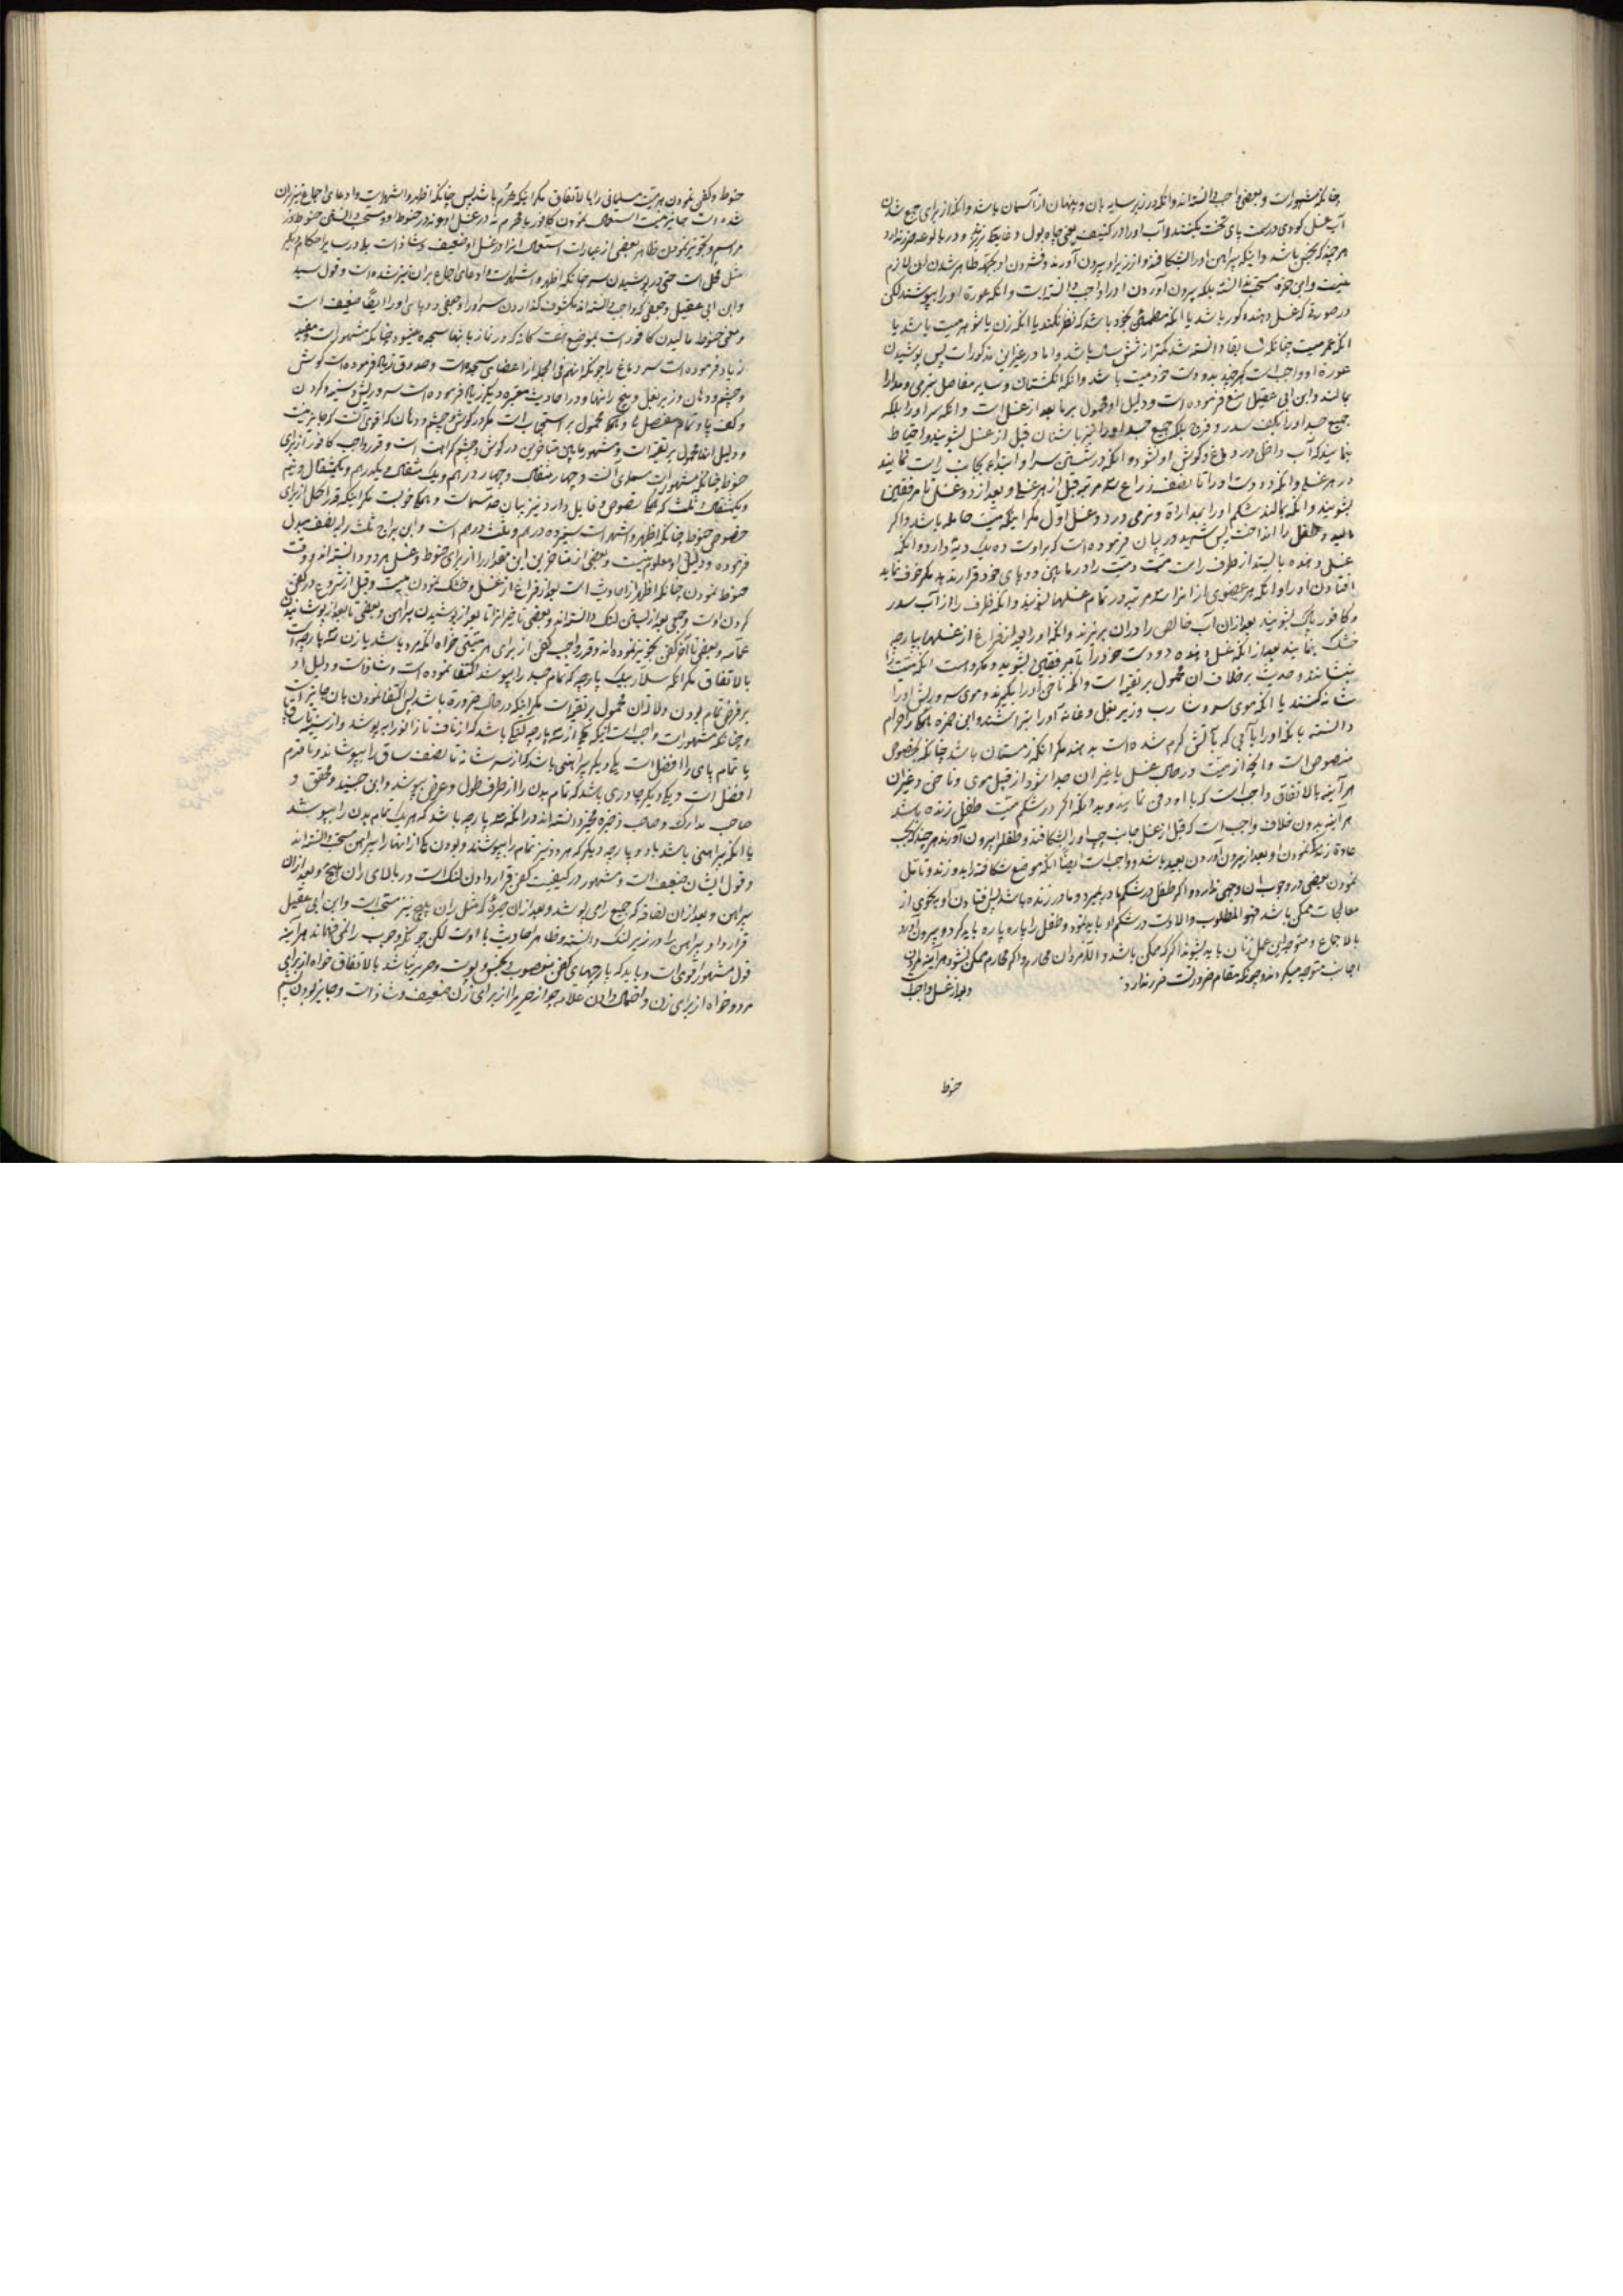 چنانکه مشهور است و بعضی واجب دانسته‌اند و آنکه در زیر سایه بان و پنهان از آسمان باشد و آنکه از برای جمع شدن
آب غسل کودی در سمت پای تخت بکنند و آب او را در کنیف یعنی چاه بول و غایط نریزند و در بالوعه ضرر ندارد
هر چند که نجس باشد و اینکه پیراهن او را بشکافند و از زیر او بیرون آورند
نیست و ابن حمزه مستحب ندانسته بلکه بیرون آوردن او را واجب دانسته است و آنکه عورة او را بپوشند لکن
در صورتی که غسل دهنده کور باشد یا آنکه مطمئن بخود باشد که نظر نکند یا آنکه زن یا شوهر میت باشد یا
آنکه عمر میت چنانکه سابقا دانسته شد کمتر از شش سال باشد و اما در غیر این مذکورات پس پوشیدن
عورة او واجب است هر چند بدو دست خود میت باشد و آنکه انگشتان و سایر مفاصل بنرمی و مدارا
بمالند و ابن ابی عقیل منع فرموده است و دلیل او محمول بر ما بعد از غسل است و آنکه سر او را بلکه
جمیع جسد او را بکف سدر و فرج بلکه جمیع جسد او را نیز باشنان قبل از غسل بشویند و احتیاط
بنمایند که آب داخل در دماغ و گوش او نشود و آنکه در شستن سر او ابتداء بجانب راست نمایند
در هر غسلی و آنکه دو دست او را تا نصف ذراع سه مرتبه قبل از هر غسلی و بعد از دو غسل تا مرفقین
بشویند و آنکه بمالند شکم او را بمداراة و نرمی در دو غسل اول مگر اینکه میت حامله باشد و اگر
مالید و طفل را انداخت پس شهید در بیان فرموده است که بر اوست ده یک دیه دارد و آنکه
غسل دهنده بایستد از طرف راست میت و میت را در ما بین دو پای خود قرار ندهد مگر خوف نماید
افتادن او را و آنکه هر عضوی از او را سه مرتبه در تمام غسلها بشویند و آنکه ظرف را از آب سدر
و کافور پاک بشویند بعد از آن آب خالص را در آن بریزند و آنکه او را بعد از فراغ از غسلها بپارچه
خشک بنمایند بعد از آنکه غسل دهنده دو دست خود را تا مرفقین بشوید و مکروه است آنکه میت را
بنشانند و حدیث بر خلاف آن محمول بر تقیه است و آنکه ناخن او را بگیرند و موی سر و ریش او را
شانه کنند یا آنکه موی سر و شارب و زیر بغل و عانه او را بتراشند و ابن حمزه همگی را حرام
دانسته یا آنکه او را با آبی که بآتش گرم شده است بدهند مگر آنکه زمستان باشد چنانکه بخصوص
منصوص است و آنچه از میت در حال غسل یا غیر آن جدا شود از قبیل موی و ناخن و غیر آن
هر آینه بالاتفاق واجب است که با او دفن نمایند و بدانکه اگر در شکم میت طفل زنده باشد
هر آینه بدون خلاف واجب است که قبل از غسل جانب چپ او را بشکافند و طفل را بیرون آورند هر چند که بحسب
عادة زندگی نمودن او بعد از بیرون آوردن بعید باشد و واجب است ایضا آنکه موضع شکافته را بدوزند و تامل
نمودن بعضی در وجوب آن وجهی ندارد و اگر طفل در شکم مادر بمیرد و مادر زنده باشد پس افتادن او بنحوی از
معالجات ممکن باشد فهو المطلوب و الا دست در شکم او باید نمود و طفل را پاره پاره باید کرد و بیرون آورد
بالاجماع و متوجه این عمل زنان باید بشوند اگر که ممکن باشد و الا مردان محارم و اگر محارم ممکن نشود هر آینه مردان
اجانب متوجه میگردند و چونکه مقام ضرورتست ضرر ندارد و بعد از غسل واجب
حنوط
حنوط و کفن نمودن هر میت مسلمانی را بالاتفاق مگر اینکه محرم باشد پس چنانکه اظهر و اشهر است و ادعای اجماع نیز بر آن
شده است جایز نیست استعمال نمودن کافور با محرم نه در غسل او و نه در حنوط او
مراسم و تجویز نمودن ظاهر بعضی از عبارات استعمال آنرا در غسل او ضعیف و شاذ است بلکه در سایر احکام دیگر
مثل محل است حتی در پوشیدن سر چنانکه اظهر و اشهر است و ادعای اجماع بر آن نیز شده است و قول سید
و ابن ابی عقیل و جمعی که واجب دانسته‌اند مکشوف گذاردن سر او را و جمعی دو پای او را ایضا ضعیف است
و معنی حنوط مالیدن کافور است بموضع هفت‌گانه که در نماز بآنها سجده میشود چنانکه مشهور است و مفید
زیاد فرموده است سر دماغ را چونکه آنهم فی الجمله از اعضای سجده است و صدوق زیاد فرموده است گوش
و چشم و دهان و زیر بغل و بیخ رانها و در احادیث معتبره دیگر زیاد فرموده است سر و ریش و سینه و گردن
و کف پا و تمام مفصل‌ها و همگی محمول بر استحباب است مگر در گوش و چشم و دهان که اقوی آنست که جایز نیست
و دلیل آنها محمول بر تقیه است و مشهور ما بین متاخرین در گوش و چشم کراهت است و قدر واجب کافور از برای
حنوط چنانکه مشهور است مسمای آنست و چهار مثقال و چهار درهم و یک مثقال و یکدرهم و یکمثقال و نیم
و یکمثقال و ثلث که همگی منصوص و قایل دارد نیز بیان حد مستحب است و همگی خوبست مگر اینکه قدر اکمل از برای
خصوص حنوط چنانکه اظهر و اشهر است سیزده درهم و ثلث درهم است و ابن براج ثلث را به نصف مبدل
فرموده و دلیل او معلوم نیست و بعضی از متاخرین این مقدار را از برای حنوط و غسل هر دو دانسته‌اند و وقت
حنوط نمودن چنانکه اظهر از احادیث است بعد از فراغ از غسل و خشک نمودن میت و قبل از شروع در کفن
کردن اوست و جمعی بعد از بستن لنگ دانسته‌اند و بعضی تاخیر آنرا تا بعد از پوشیدن پیراهن و بعضی تا بعد از پوشانیدن
عمامه و بعضی تا آخر کفن تجویز نموده‌اند و قدر واجب کفن از برای هر میتی خواه آنکه مرد باشد یا زن سه پارچه است
بالاتفاق مگر آنکه سلار بیک پارچه که تمام جسد را بپوشد اکتفا نموده است و شاذ است و دلیل او
بر فرض تمام بودن دلالت آن محمول بر تقیه است مگر اینکه در حال ضرورة باشد پس اکتفا نمودن بآن جایز است
و چنانکه مشهور است واجب است اینکه یکی از سه پارچه لنگی باشد که از ناف تا زانو را بپوشد و از سینه تا ساق پا
یا تمام پای را افضل است و یکی دیگر پیراهنی باشد که از سر شانه تا نصف ساق را بپوشاند و تا قدم
افضل است و یکی دیگر چادری باشد که تمام بدن را از طرف طول و عرض بپوشد و ابن جنید و محقق و
صاحب مدارک و صاحب ذخیره مخیر دانسته‌اند در آنکه سه پارچه باشد که هر یک تمام بدن را بپوشد
یا آنکه پیراهنی باشد با دو پارچه دیگر که هر دو نیز تمام را بپوشند و بودن یکی از آنها را پیراهن مستحب دانسته‌اند
و قول ایشان ضعیف است و مشهور در کیفیت کفن قرار دادن لنگ است در بالای ران پیچ و بعد از آن
پیراهن و بعد از آن لفافه که جمیع را می‌پوشد و بعد از آن حبره که مثل ران پیچ نیز مستحب است و ابن ابی عقیل
قرار داد پیراهن را در زیر لنگ دانسته و ظاهر احادیث با اوست لکن چونکه وجوب را نمی‌فهماند هر آینه
قول مشهور اقوی است و باید که پارچهای کفن مغصوب و نجس و پوست و حریر نباشد بالاتفاق خواه از برای
مرد و خواه از برای زن و احتمال دادن علامه جواز حریر را از برای زن ضعیف و شاذ است و جایز بودن پشم